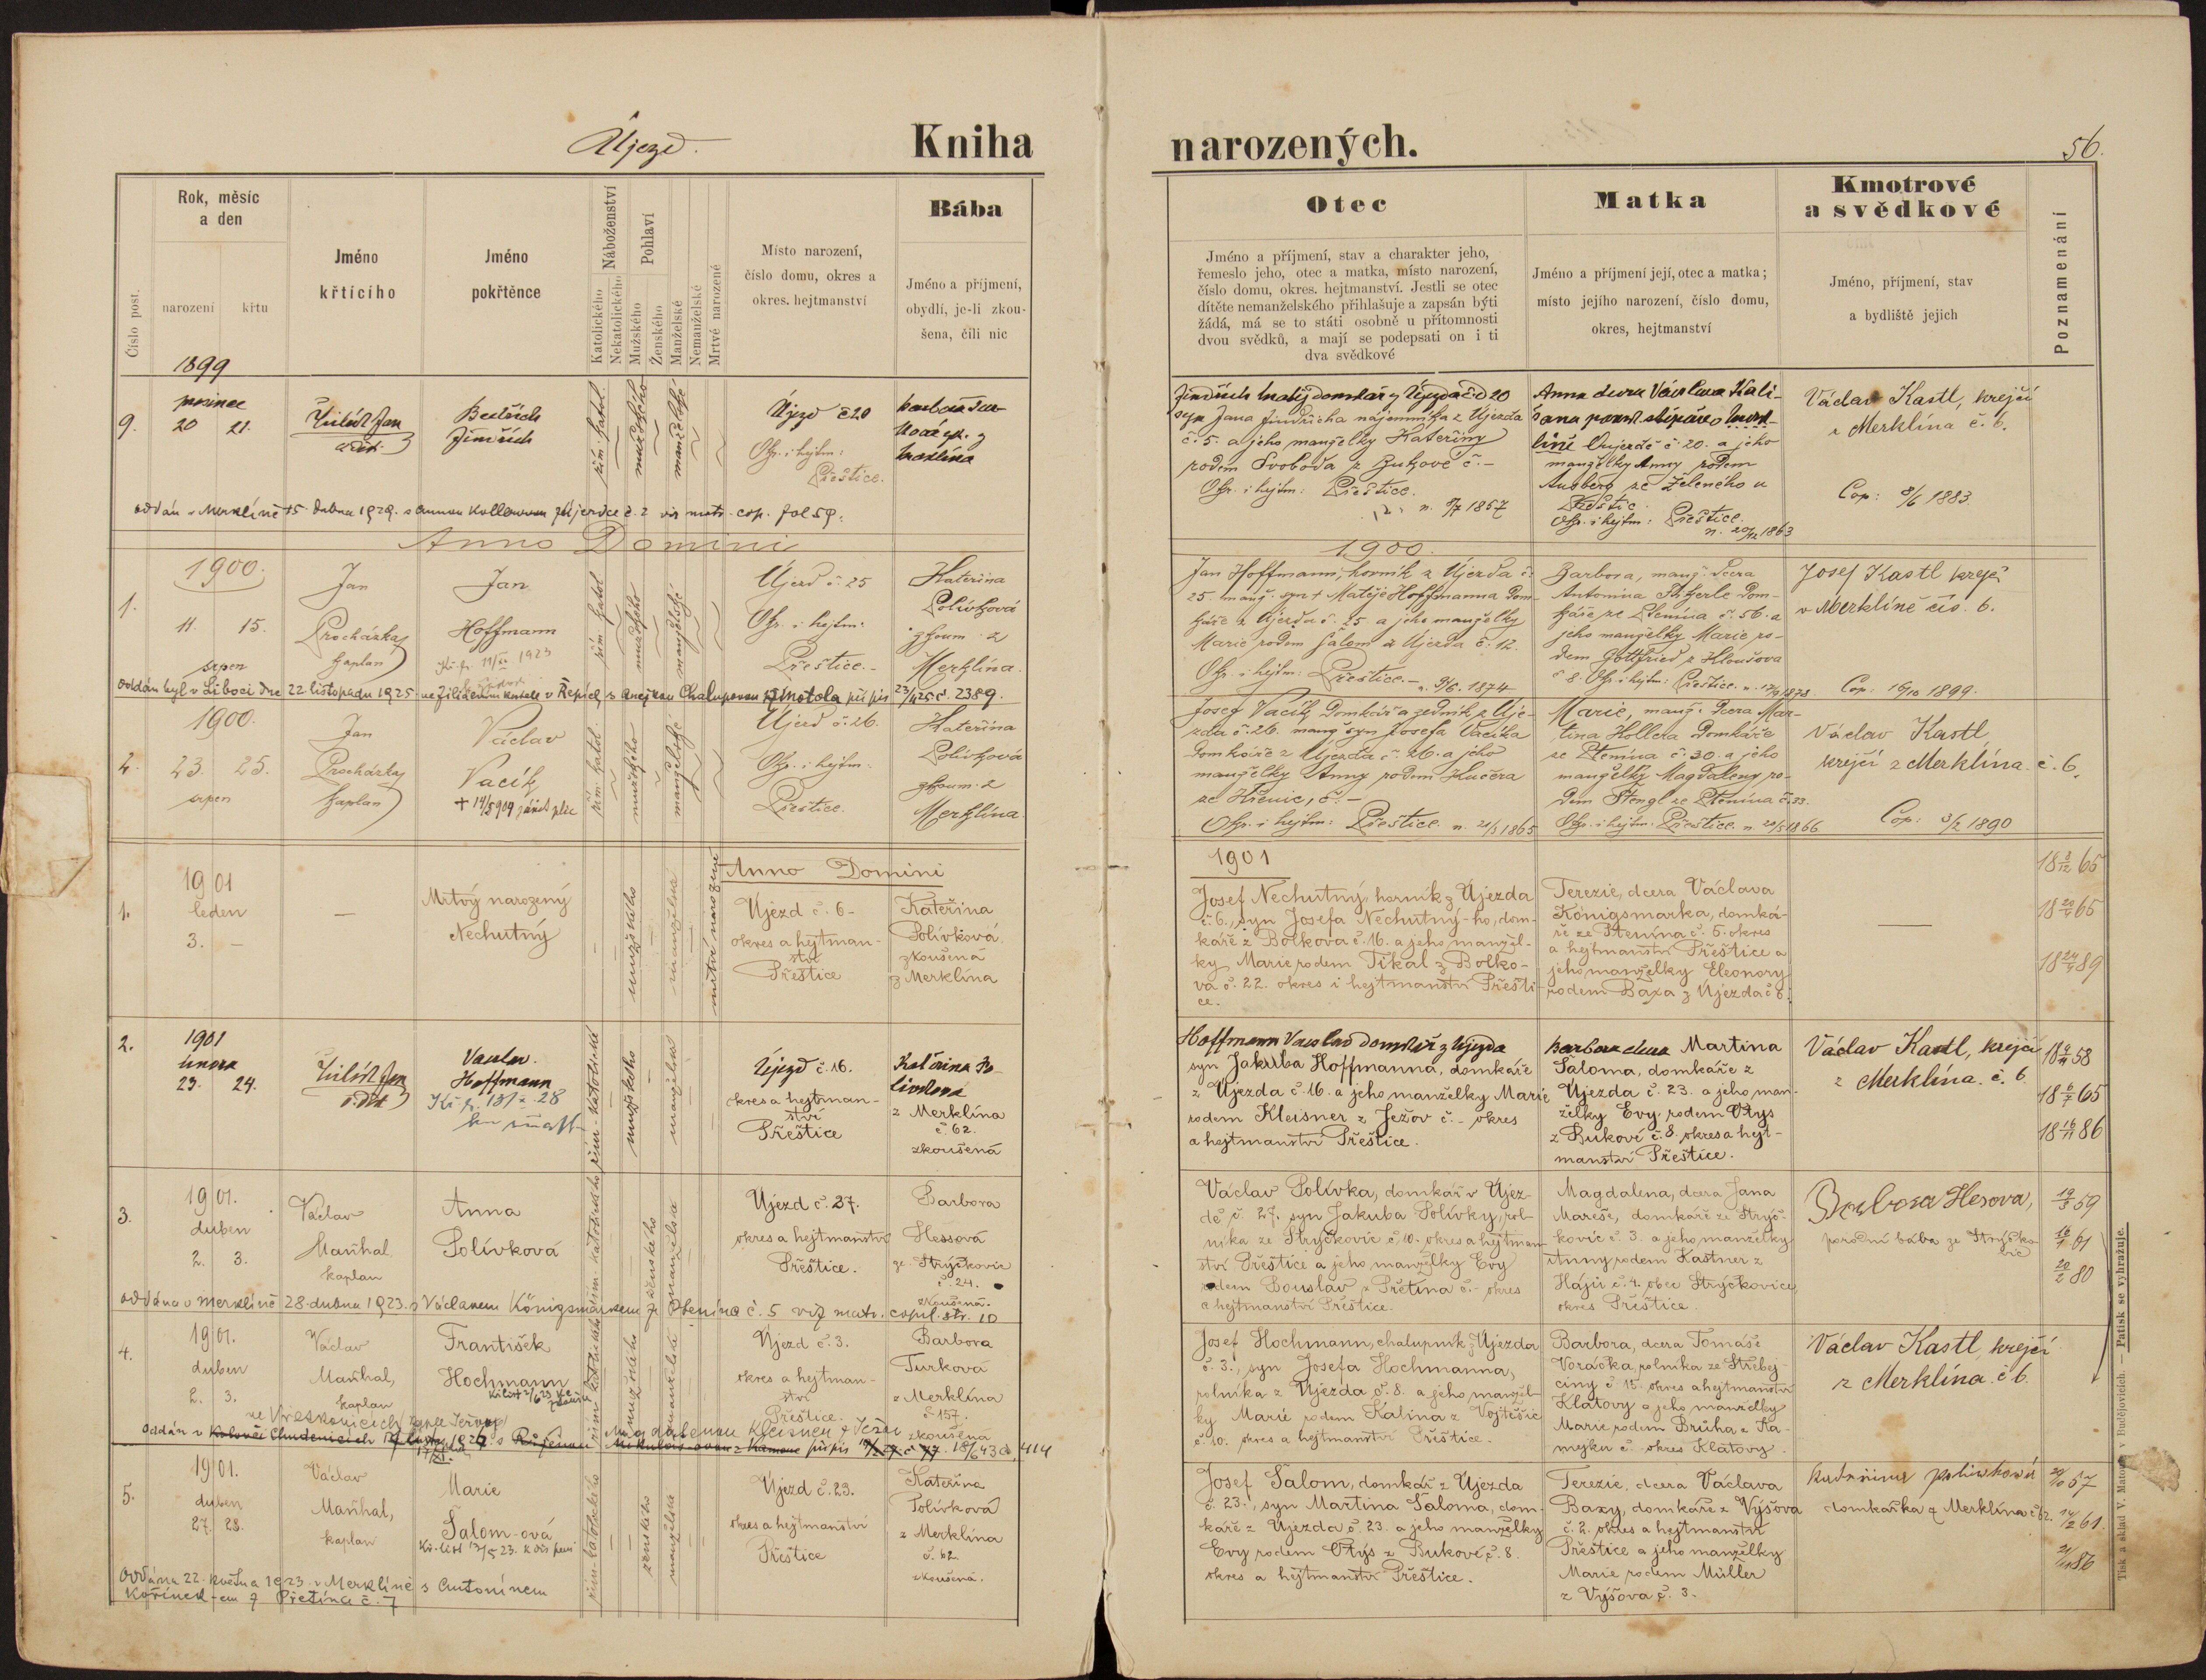 Újezd.
Kniha
narozených.
56.
Číslo post.
Rok, měsíc
a den
narození
křtu
Jméno
křtícího
Jméno
pokřtěnce
Náboženství
Katolického
Nekatolického
Pohlaví
Mužského
Ženského
Manželské
Nemanželské
Mrtvé narozené
Místo narození,
číslo domu, okres a
okres. hejtmanství
Bába
Jméno a příjmení,
obydlí, je-li zkou-
šena, čili nic
Otec
Jméno a příjmení, stav a charakter jeho,
řemeslo jeho, otec a matka, místo narození,
číslo domu, okres. hejtmanství. Jestli se otec
dítěte nemanželského přihlašuje a zapsán býti
žádá, má se to státi osobně u přítomnosti
dvou svědků, a mají se podepsati on i ti
dva svědkové
Matka
Jméno a příjmení její, otec a matka;
místo jejího narození, číslo domu,
okres, hejtmanství
Kmotrové
a svědkové
Jméno, příjmení, stav
a bydliště jejich
Poznamenání
1899
9.
prosinec
20 21.
Jan
Jindřich
řím. katol.
mužského
manželské
Újezd č 20
Okr. i hejtm:
Přeštice.
Jindřich Matěj domkář z Újezda čd 20
syn Jana Jindřicha nájemníka z Újezda
č. 5. a jeho manželky Kateřiny
rodem Svoboda z Bukové č. –
Okr. i hejtm: Přeštice.
n. 8/7 1857
Anna dcera Václava Kali-
líně Oujezdě č. 20. a jeho
manželky Anny rodem
Ausberg ze Zeleného u
Okr. i hejtm: Přeštice.
n. 20/12 1863
Václav Kastl, krejčí
z Merklína č. 6.
Cop: 8/6 1883.
oddán v Merklíně 15. dubna 1929. s Annou Kollerovou z Újezdce č. 2 viz matr. cop. fol 59.
Anno Domini
1900.
1900.
1.
11. 15.
srpen
Jan
Procházka
kaplan
Jan
Hoffmann
řím. katol.
mužského
manželské
Újezd č. 25
Okr. i hejtm:
Přeštice.–
Kateřina
Polívková
zkoum. z
Merklína.
Jan Hoffmann, horník z Újezda č.
25. manž. syn + Matěje Hoffmanna dom-
káře z Újezda č. 25 a jeho manželky
Marie rodem Šalom z Újezda č. 12.
Okr. i hejtm: Přeštice.– n. 9/6. 1874
Barbora, manž. dcera
Antonína
káře ze Ptenína č. 56. a
jeho manželky Marie ro-
dem Gottfried z Hloušova
č 8. Okr. i hejtm: Přeštice.
Josef Kastl krejčí
v Merklíně čís. 6.
Cop. 16/10 1899.
oddán byl v Liboci dne 22. listopadu 1925. v Řepích s Anežkou Chalupovou z Motola při pís 23/11 25 č. 2389.
1900.
2.
23. 25.
srpen
Jan
Procházka
kaplan
Václav
Vacík
řím. katol.
mužského
manželské
Újezd č. 26.
Okr. i hejtm:
Přeštice.
Kateřina
Polívková
zkoum. z
Merklína.
Josef Vacík domkář a zedník z Úje-
zda č. 26. manž. syn Josefa Vacíka
domkáře z Újezda č. 26. a jeho
manželky Anny rodem Kučera
ze Křenic, č. –
Okr. i hejtm: Přeštice. n. 21/3 1865
Marie, manž. dcera Mar-
tina Hollera domkáře
ze Ptenína č. 30. a jeho
manželky Magdaleny ro-
dem Štengl ze Ptenína č. 33.
Okr. i hejtm: Přeštice. n. 20/5 1866
Václav Kastl
krejčí z Merklína č. 6.
Cop: 3/2 1890
Anno Domini
1901
1.
1901
leden
3. –
–
Mrtvý narozený
Nechutný
mužského
manželské
mrtvě narozené
Újezd č. 6–
okres a hejtman-
ství
Přeštice
Kateřina
Polívková
zkoušená
z Merklína
Josef Nechutný, horník z Újezda
č. 6., syn Josefa Nechutný-ho, dom-
káře z Bolkova č. 16. a jeho manžel-
ky Marie rodem Tikal z Bolko-
va č. 22. okres i hejtmanství Přešti-
ce.
Terezie, dcera Václava
Königsmarka, domká-
ře ze Ptenína č. 5. okres
a hejtmanství Přeštice a
jeho manželky Eleonory
rodem Baxa z Újezda č 6.
18 8/12 65
18 20/4 65
18 24/9 89
2.
1901
února
23. 24.
Jan
Václav
Hoffmann
řím-katolické
mužského
manželské
Újezd č. 16.
okres a hejtman-
ství
Přeštice
Kateřina Po-
lívková
z Merklína
č. 62.
zkoušená
Hoffmann Václav domkář z Újezda
syn Jakuba Hoffmanna, domkáře
z Újezda č. 16. a jeho manželky Marie
rodem Kleisner z Ježov č. – okres
a hejtmanství Přeštice.
Barbora dcera Martina
Šaloma, domkáře z
Újezda č. 23. a jeho man-
želky Evy rodem Otys
z Bukové č. 8. okres a hejt-
manství Přeštice.
Václav Kastl, krejčí
z Merklína č. 6.
18 6/7 65
18 16/11 86
3.
1901.
duben
2. 3.
Václav
Maňhal
kaplan
Anna
Polívková
ženského
manželská
Újezd č. 27.
okres a hejtmanství
Přeštice.
Barbora
Hessová
ze Strýčkovic
č. 24.
zkoušená.
Václav Polívka, domkář v Újez-
dě č. 27. syn Jakuba Polívky, rol-
níka ze Strýčkovic č. 10. okres a hejtman-
ství Přeštice a jeho manželky Evy
rodem Bouslav z Přetína č. – okres
a hejtmanství Přeštice.
Magdalena, dcera Jana
Mareše, domkáře ze Strýč-
kovic č. 3. a jeho manželky
Anny rodem Kastner z
Hájů č. 4. obec Strýčkovice
okres Přeštice.
Barbora Hesova,
porodní bába ze Strýčko-
vic
19/3 59
16/1 61
20/2 80
oddána v Merklíně 28. dubna 1923. s Václavem Königsmarkem ze Ptenína č. 5 viz matr. copul. str. 10
4.
1901.
duben
2. 3.
Václav
Maňhal,
kaplan
František
Hochmann
mužského
manželské
Újezd č. 3.
okres a hejtman-
ství
Přeštice.
Barbora
Turková
z Merklína
č 157.
zkoušená
Josef Hochmann, chalupník z Újezda
č. 3., syn Josefa Hochmanna,
rolníka z Újezda č. 8. a jeho manžel-
ky Marie rodem Kalina z Vojtěšic
č. 10. okres a hejtmanství Přeštice.
Barbora, dcera Tomáše
Voráčka, rolníka ze Střebej-
činy č. 15. okres a hejtmanství
Klatovy a jeho manželky
Marie rodem Brůha z Ka-
mejku č. – okres Klatovy.
Václav Kastl, krejčí
z Merklína č 6.
5.
1901.
duben
27. 28.
Václav
Maňhal,
kaplan
Marie
Šalom-ová
řím-katolického
ženského
manželská
Újezd č. 23.
okres a hejtmanství
Přeštice
Kateřina
Polívková
z Merklína
č. 62.
zkoušená.
Josef Šalom, domkář z Újezda
č. 23., syn Martina Šaloma, dom-
káře z Újezda č. 23. a jeho manželky
Evy rodem Otys z Bukové č. 8.
okres a hejtmanství Přeštice.
Terezie, dcera Václava
Baxy, domkáře z Výšova
č. 2. okres a hejtmanství
Přeštice a jeho manželky
Marie rodem Müller
z Výšova č. 3.
Kateřina Polívková
domkářka z Merklína č 62.
oddána 22. května 1923. v Merklíně s Antonínem
Kořínek-em z Přetína č. 7
Tisk a sklad V. Matouš v Budějovicích. — Patisk se vyhražuje.